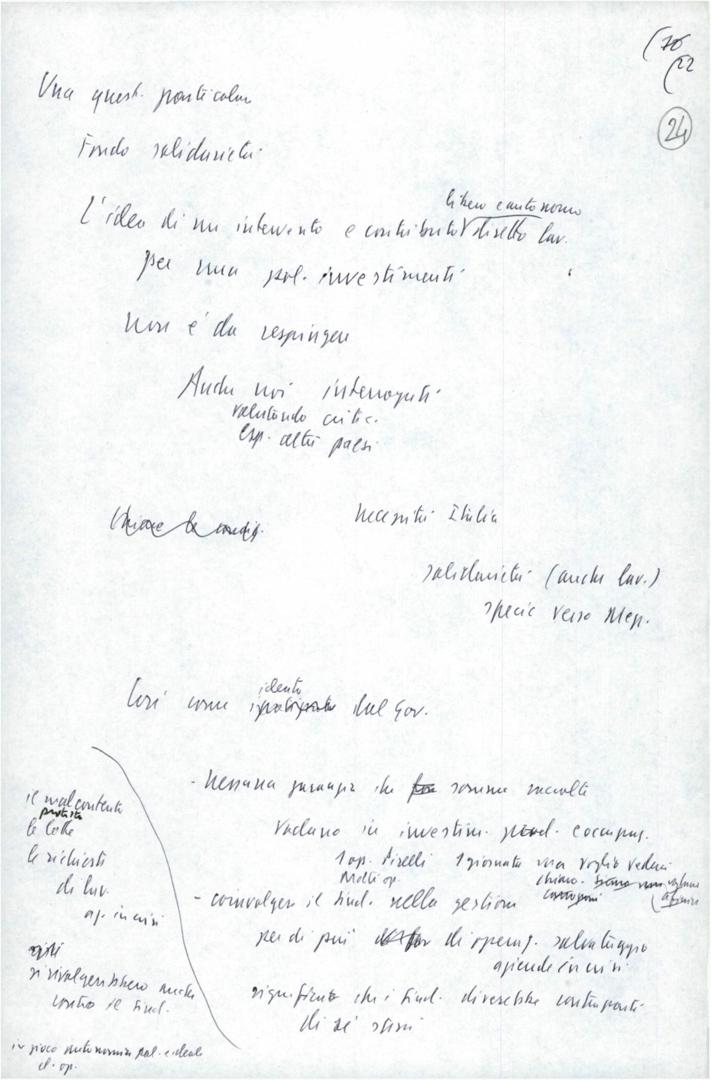 (76
(22
24
Una quest. particolar
Fondo solidarietà
libero e autonomo
L'idea di un intervento e contributo diretto lav.
per una pol. investimenti
non è da respingere
Anche noi interrogati
valutando critic.
esp. altri paesi
necessità Italia
solidarietà (anche lav.)
specie verso Mep.
ideato
Così come dal gov.
- nessuna garanzia che somme raccolte
vadano in investim. prod. e occupaz.
1 op. Pirelli 1 giornata ma voglio vederci
Molti op. chiaro.
- coinvolgere il Sind. nella gestione
per di più di operaz. salvataggio
aziende in crisi
significato che i Sind. diverrebbe controparte
di sé stessi
il malcontento
protesta
le lotte
le richieste
di lav.
az. in crisi
si rivolgerebbero anche
contro il Sind.
in gioco autonomia pol. e ideale
cl. op.